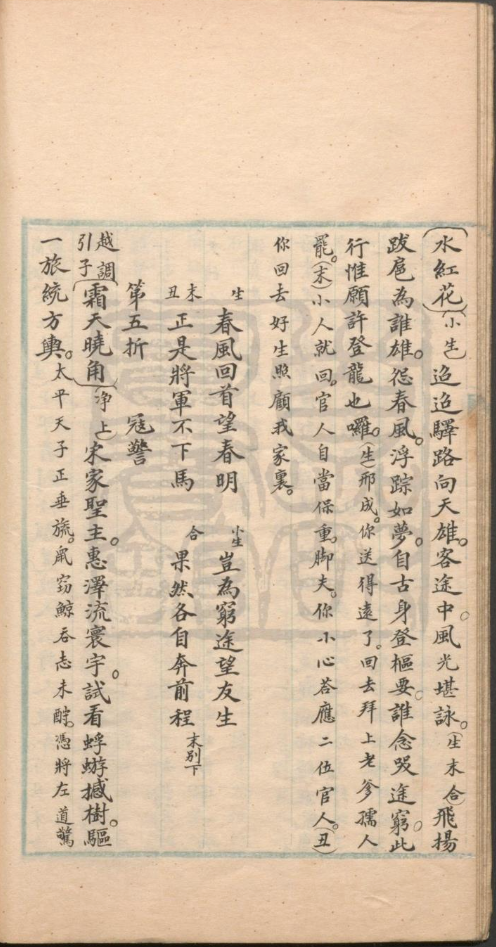 水紅花(小生)迢迢驛路向天雄。客途中。風光堪詠。(生末合)飛揚
跋扈為誰雄。怨春風。浮踪如夢。自古身登樞要。誰念哭途窮。此
行惟願許登龍也囉。(生)邢成。你送得遠了。回去拜上老爹孺人
罷。(末)小人就回。官人自當保重。脚夫。你小心荅應二伍官人。(丑)
你回去好生照顧我家裏。
生春風回首望春明 小生豈為窮途望友生
末丑正是將軍不下馬 合果然各自奔前程 末別下
第五折 冦警
越調引子霜天曉角(淨上)宋家聖主。惠澤流寰宇。試看蜉蝣撼樹。驅
一旅統方輿。太平天子正垂旒。鼠窃鯨吞志未酧。憑將左道驚